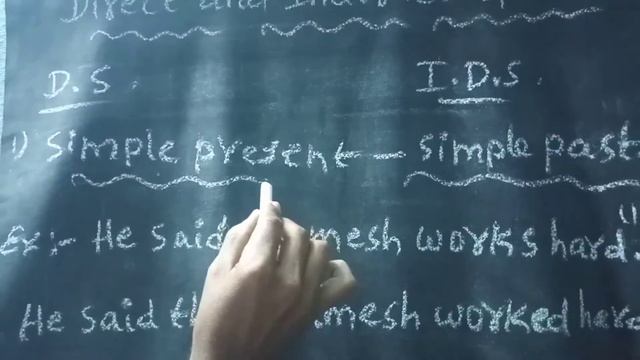 Direct and
D.S. I.D.S.
1) Simple present — simple past
Ex:- He said mesh works hard."
He said mesh worked